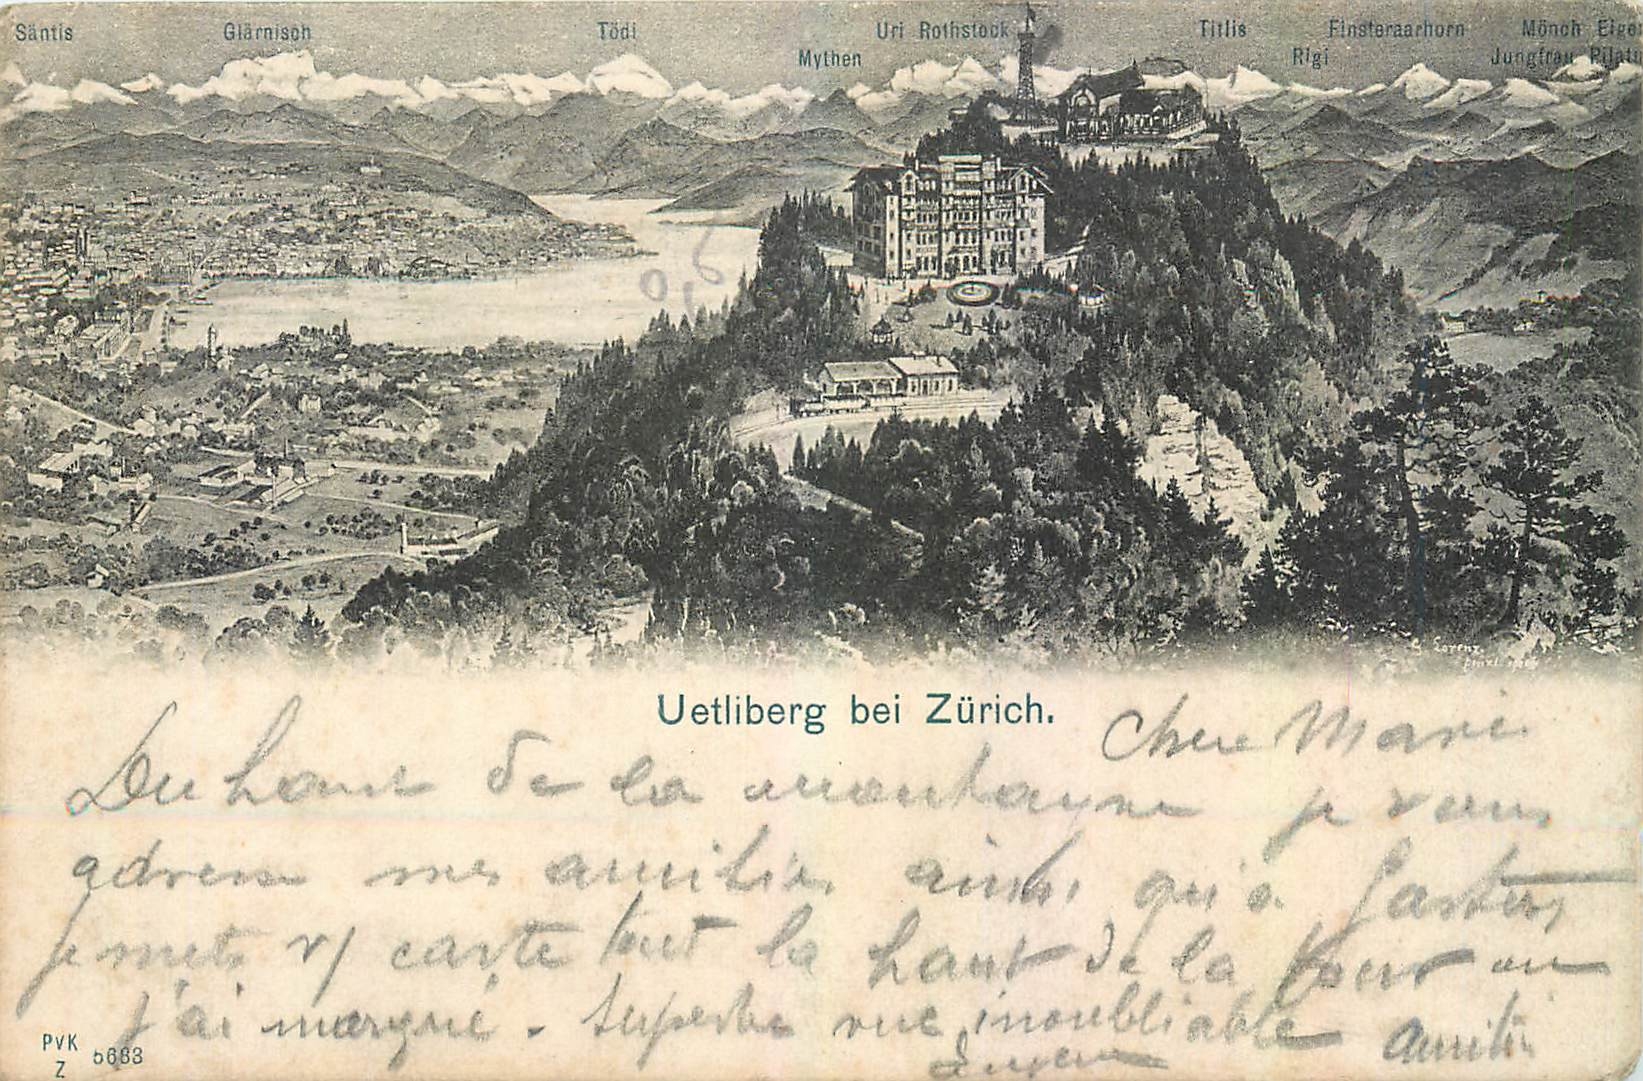 Säntis Glärnisch Tödi Uri Rothstock Titlis Finsteraarhorn Mönch Eiger
Mythen Rigi Jungfrau Pilatus
96
G. Lorenz
Uetliberg bei Zürich.
Chere Marie
Du haut de la montagne je vous
adresse mes amitiés ainsi qu'à Gaston
je mets v/ carte tout la haut de la tour ou
j'ai marqué. Superbe vue inoubliable
amitiés
PvK
Z 5683